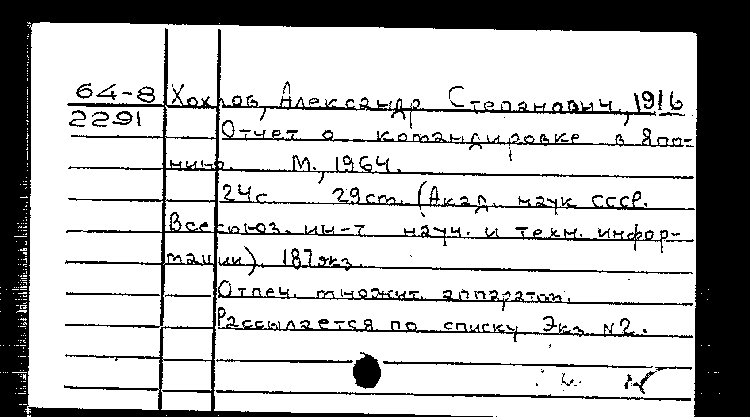 64-8 Хохлов, Александр Степанович, 1916
2291 Отчет о командировке в Япо-
нию. М., 1964.
24с 29см. (Акад. наук СССР.
Всесоюз. ин-т науч. и техн. инфор-
мации). 187экз.
Отпеч. множит. аппаратом.
Рассылается по списку Экз N2.